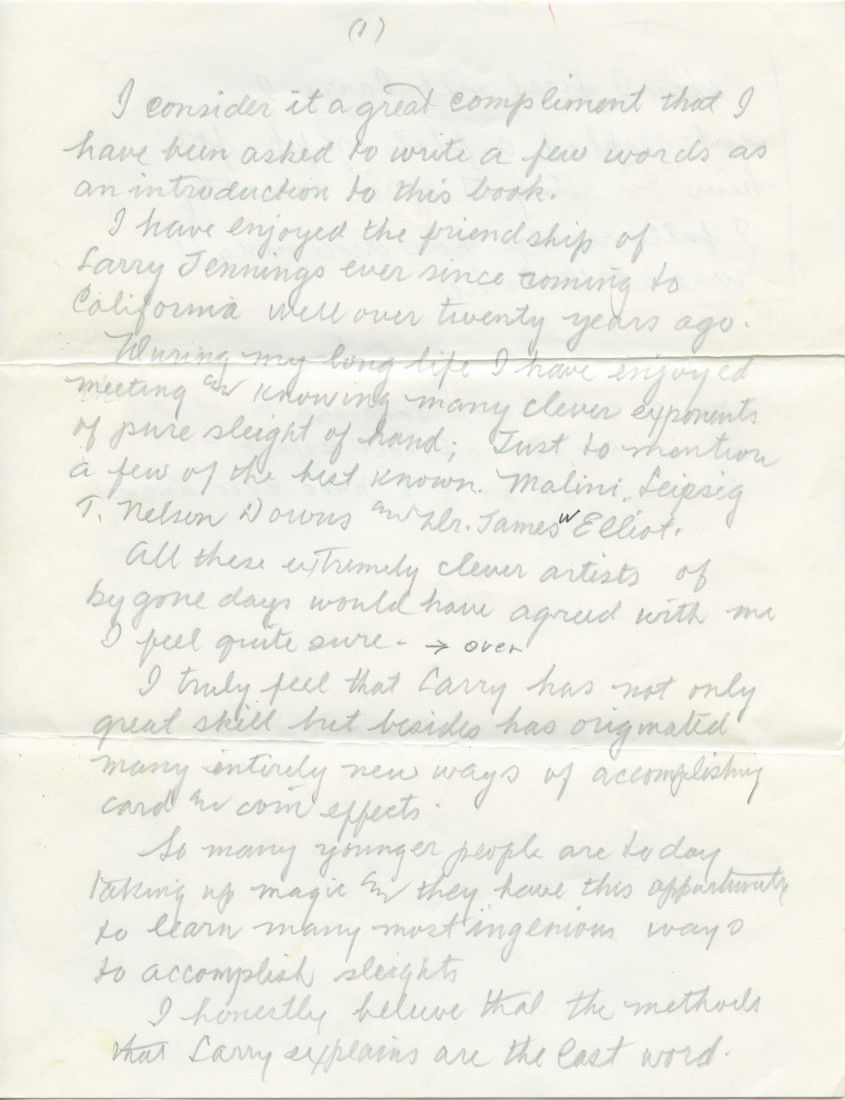 (1)
I consider it a great compliment that I
have been asked to write a few words as
an introduction to this book.
I have enjoyed the friendship of
Larry Jennings ever since coming to
California well over twenty years ago.
During my long life I have enjoyed
meeting and knowing many clever exponents
of pure sleight of hand; Just to mention
a few of the best known. Malini, Leipsig
T. Nelson Downs and Dr. James W Elliot.
All these extremely clever artists of
bygone days would have agreed with me
I feel quite sure. → over
I truly feel that Larry has not only
great skill but besides has originated
many entirely new ways of accomplishing
card and coin effects.
So many younger people are today
taking up magic and they have this opportunity
to learn many most ingenious ways
to accomplish sleights
I honestly believe that the methods
that Larry explains are the last word.